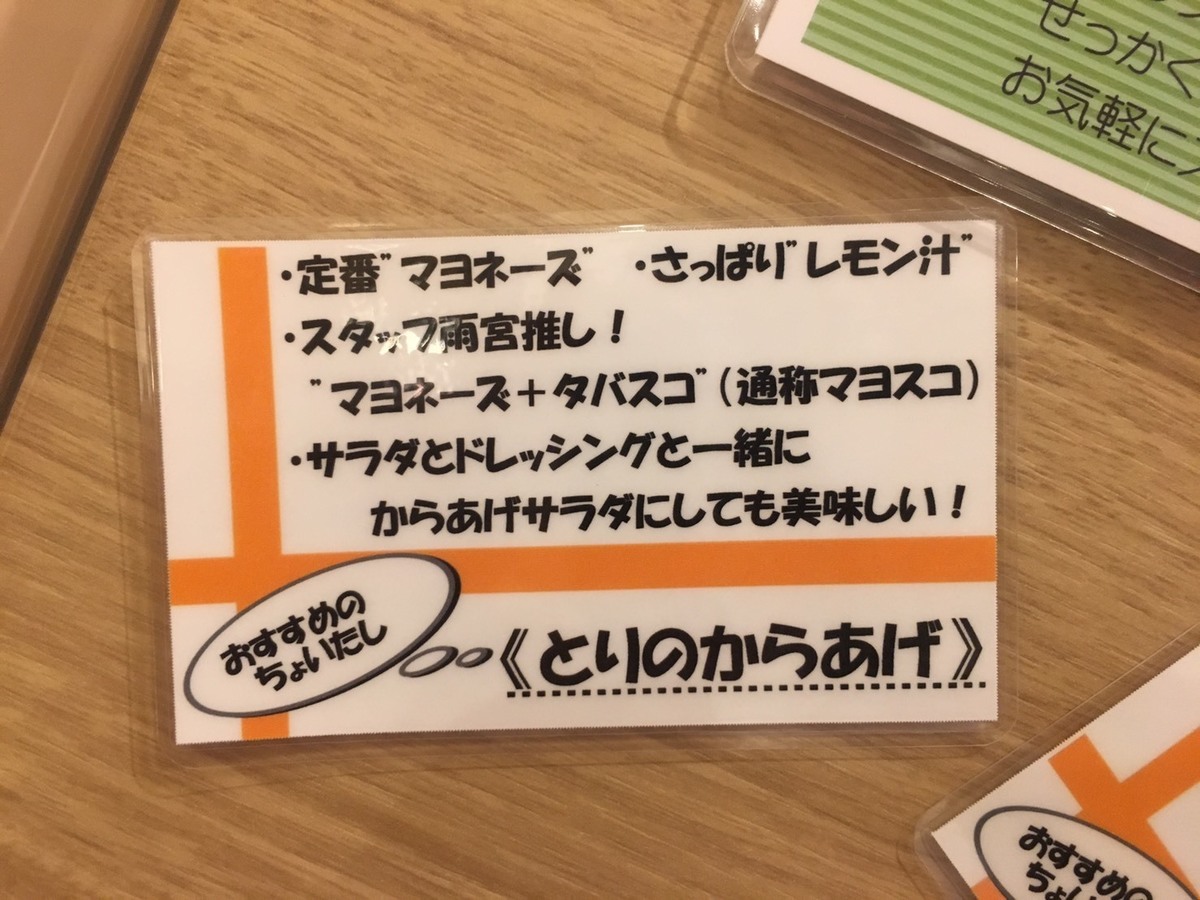 せっかく
お気軽に
・定番"マヨネーズ" ・さっぱり"レモン汁"
・スタッフ雨宮推し！
"マヨネーズ＋タバスコ"（通称マヨスコ）
・サラダとドレッシングと一緒に
からあげサラダにしても美味しい！
おすすめの
ちょいたし
《とりのからあげ》
おすすめの
ちょい